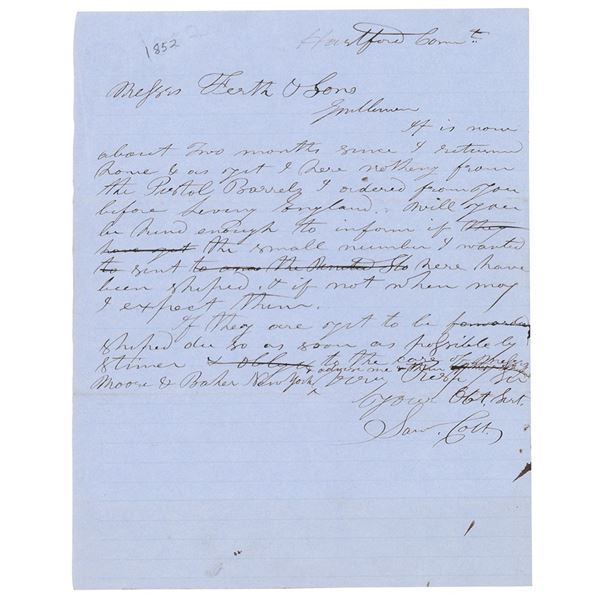 1852
Hartford Connt.
Messrs Ferth & Sons
Gentlemen
It is now
about two months since I return
home & as yet I here nothing from
the Pistol Barrels I ordered from you
before leveng England. Will you
be kind enough to inform if they
have yet the small number I wanted
to sent to have been
been shiped, & if not when may
I expect them.
If they are yet to be
shiped do so as soon as possibely
stimer to the care of Messrs
Moore & Baker New York, advise me very Resp
Your Obt. Sert.
Sam. Colt.